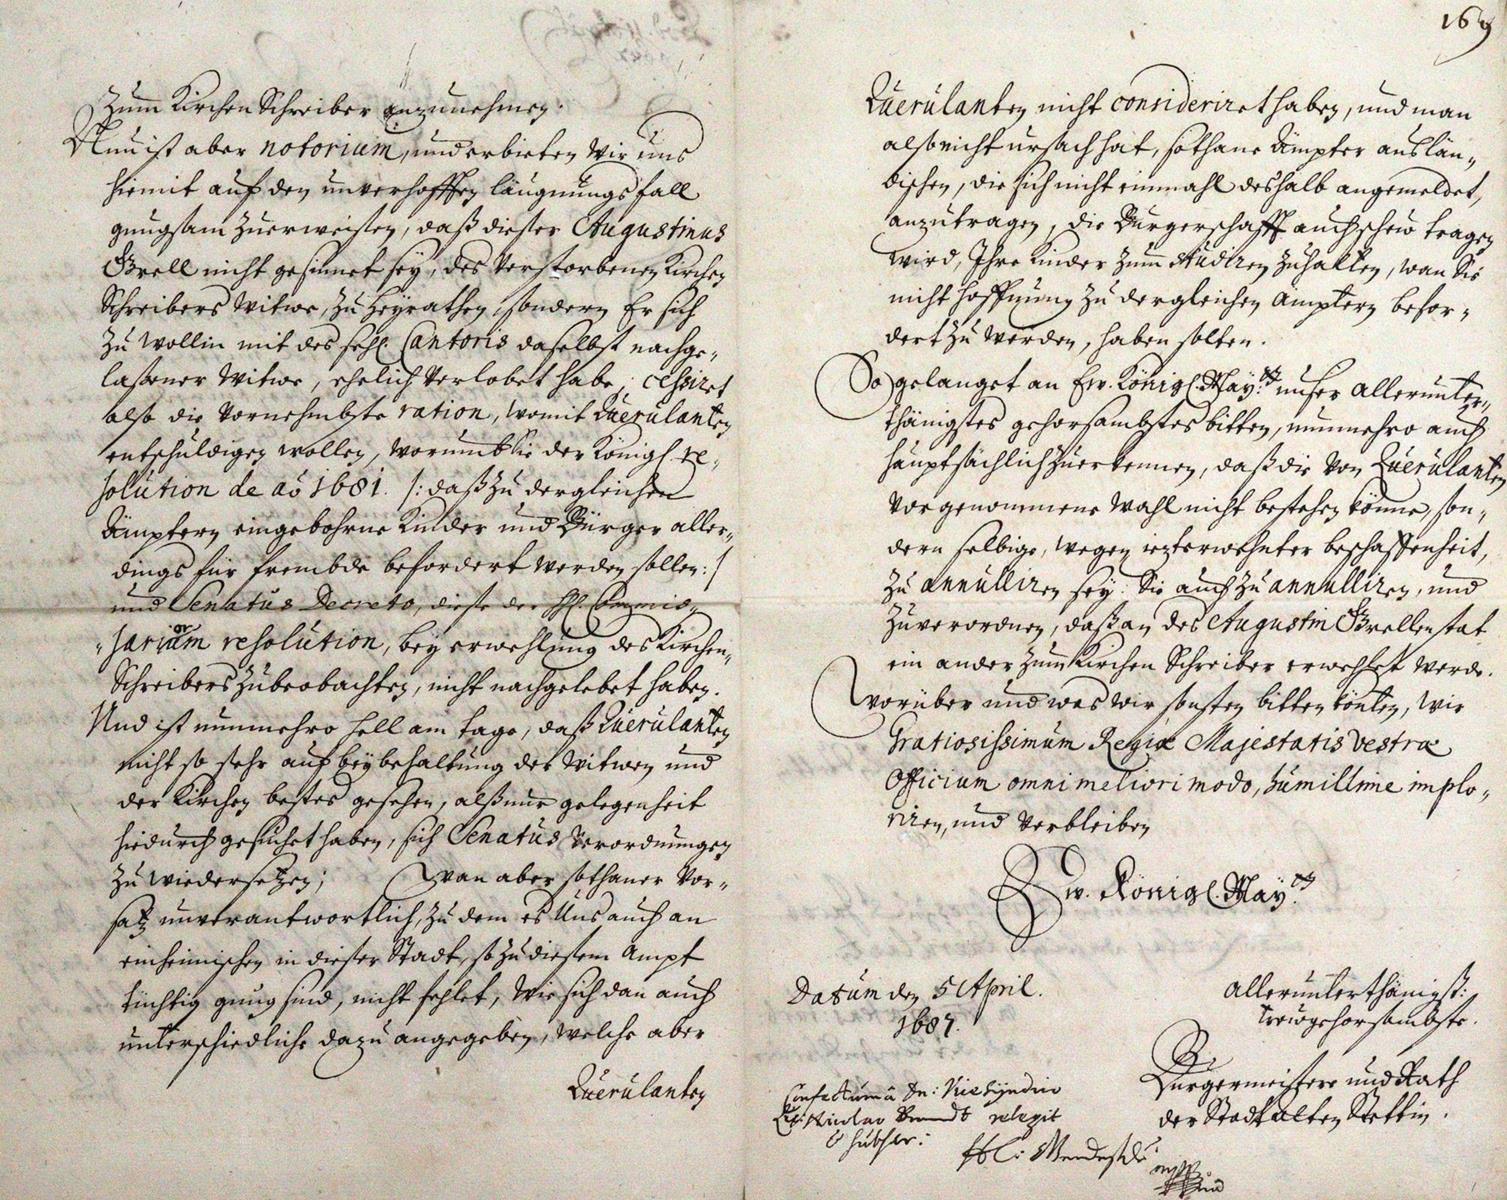 Zum Kirchen Schreiber anzunehmen.
Nun ist aber notorium, und erbieten Wir uns
hiemit auf den unverhofften läugnungsfall
gnugsam zuerweisen, daß dieser Augustinus
Grell nicht gesinnet sey, des verstorbenen Kirchen
Schreibers Witwe, zu heyrathen, sondern Er sich
zu Wollin mit des sehl. Cantoris daselbst nachge-
laßener Witwe, ehelich verlobet habe; cessiret
also die Vornehmbste ration, womit Querulanten
entschuldigen wollen, worumb Sie der Königl. re-
solution de aō 1681. /: daß zu dergleichen
Ämptern eingebohrne Kinder und Bürger aller-
dings für frembde befordert werden sollen :/
und Senatus Decreto, diese der HH. Commis-
sariorum resolution, bey erwehlung des Kirchen-
Schreibers zubeobachten, nicht nachgelebet haben.
Und ist nunmehro hell am tage, daß Querulanten
nicht so sehr auf beybehaltung der Witwen und
der Kirchen bestes gesehen, alß nur gelegenheit
hiedurch gesuchet haben, sich Senatus Verordnungen
zu wiedersetzen; Wan aber sothaner Vor-
satz unverantwortlich, zu dem es Uns auch an
einheimischen in dieser Stadt, so zu diesem Ampt
tüchtig gnug sind, nicht fehlet, wie sich dan auch
unterschiedliche dazu angegeben, welche aber
Querulanten
169
Querulanten nicht consideriret haben, und man
also nicht ursach hat, sothane Ämpter auslän-
dischen, die sich nicht einmahl deshalb angemeldet,
anzutragen, die Bürgerschafft auch schew tragen
wird, Ihre Kinder zum studiren zuhalten, wan Sie
nicht hoffnung zu dergleichen Ämptern befor-
dert zu werden, haben solten.
So gelanget an Ew. Königl. Mayᵗ. unser allerunter-
thänigstes gehorsambstes bitten, nunmehro auch
hauptsächlich zuerkennen, daß die von Querulanten
vorgenommene Wahl nicht bestehen könne, son-
dern selbige, wegen ietzterwehnter beschaffenheit,
zu annulliren sey. Sie auch zu annulliren, und
zuverordnen, daß an des Augustin Grellen stat
ein ander zum Kirchen Schreiber erwehlet werde.
Worüber und was wir sonsten bitten könten, wie
Gratiosissimum Regiæ Majestatis Vestræ
Officium omni meliori modo, humillime implo-
riren, und verbleiben
Ew. Königl. Mayᵗ.
Datum den 5 April.
1687.
allerunterthänigst:
Trewgehorsambste.
Bürgermeistere und Rath
der Stadt Alten Stettin.
Confectum â Dn: Vicesyndico
relegit
& subscr: